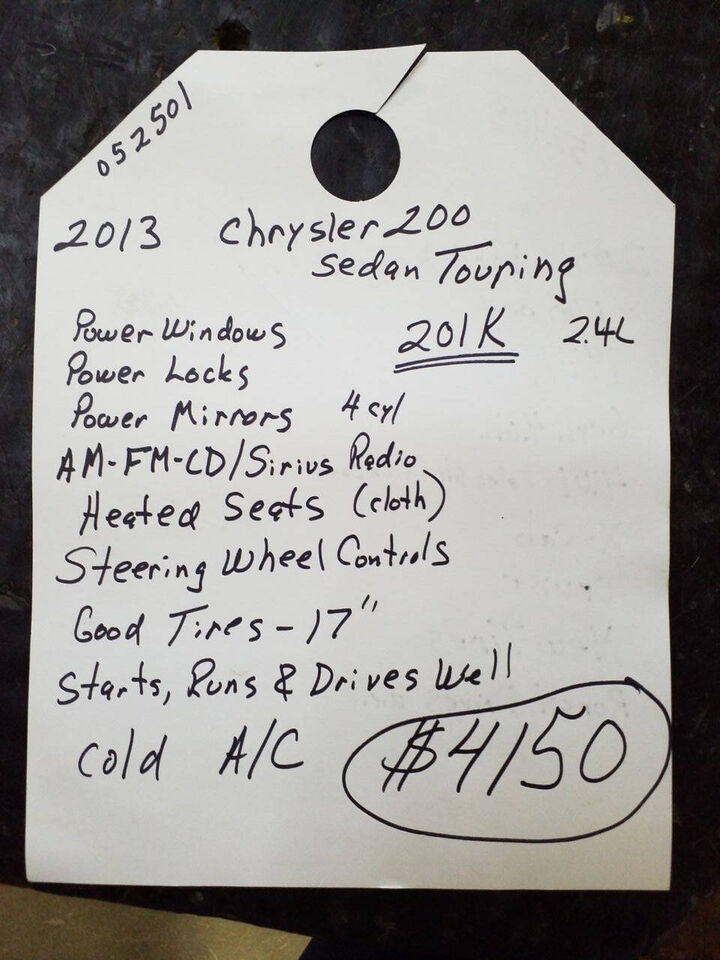 052501
2013 Chrysler 200
Sedan Touring
Power Windows 201K 2.4L
Power Locks
Power Mirrors 4 cyl
AM-FM-CD/Sirius Radio
Heated Seats (cloth)
Steering Wheel Controls
Good Tires - 17"
Starts, Runs & Drives Well
Cold A/C $4150